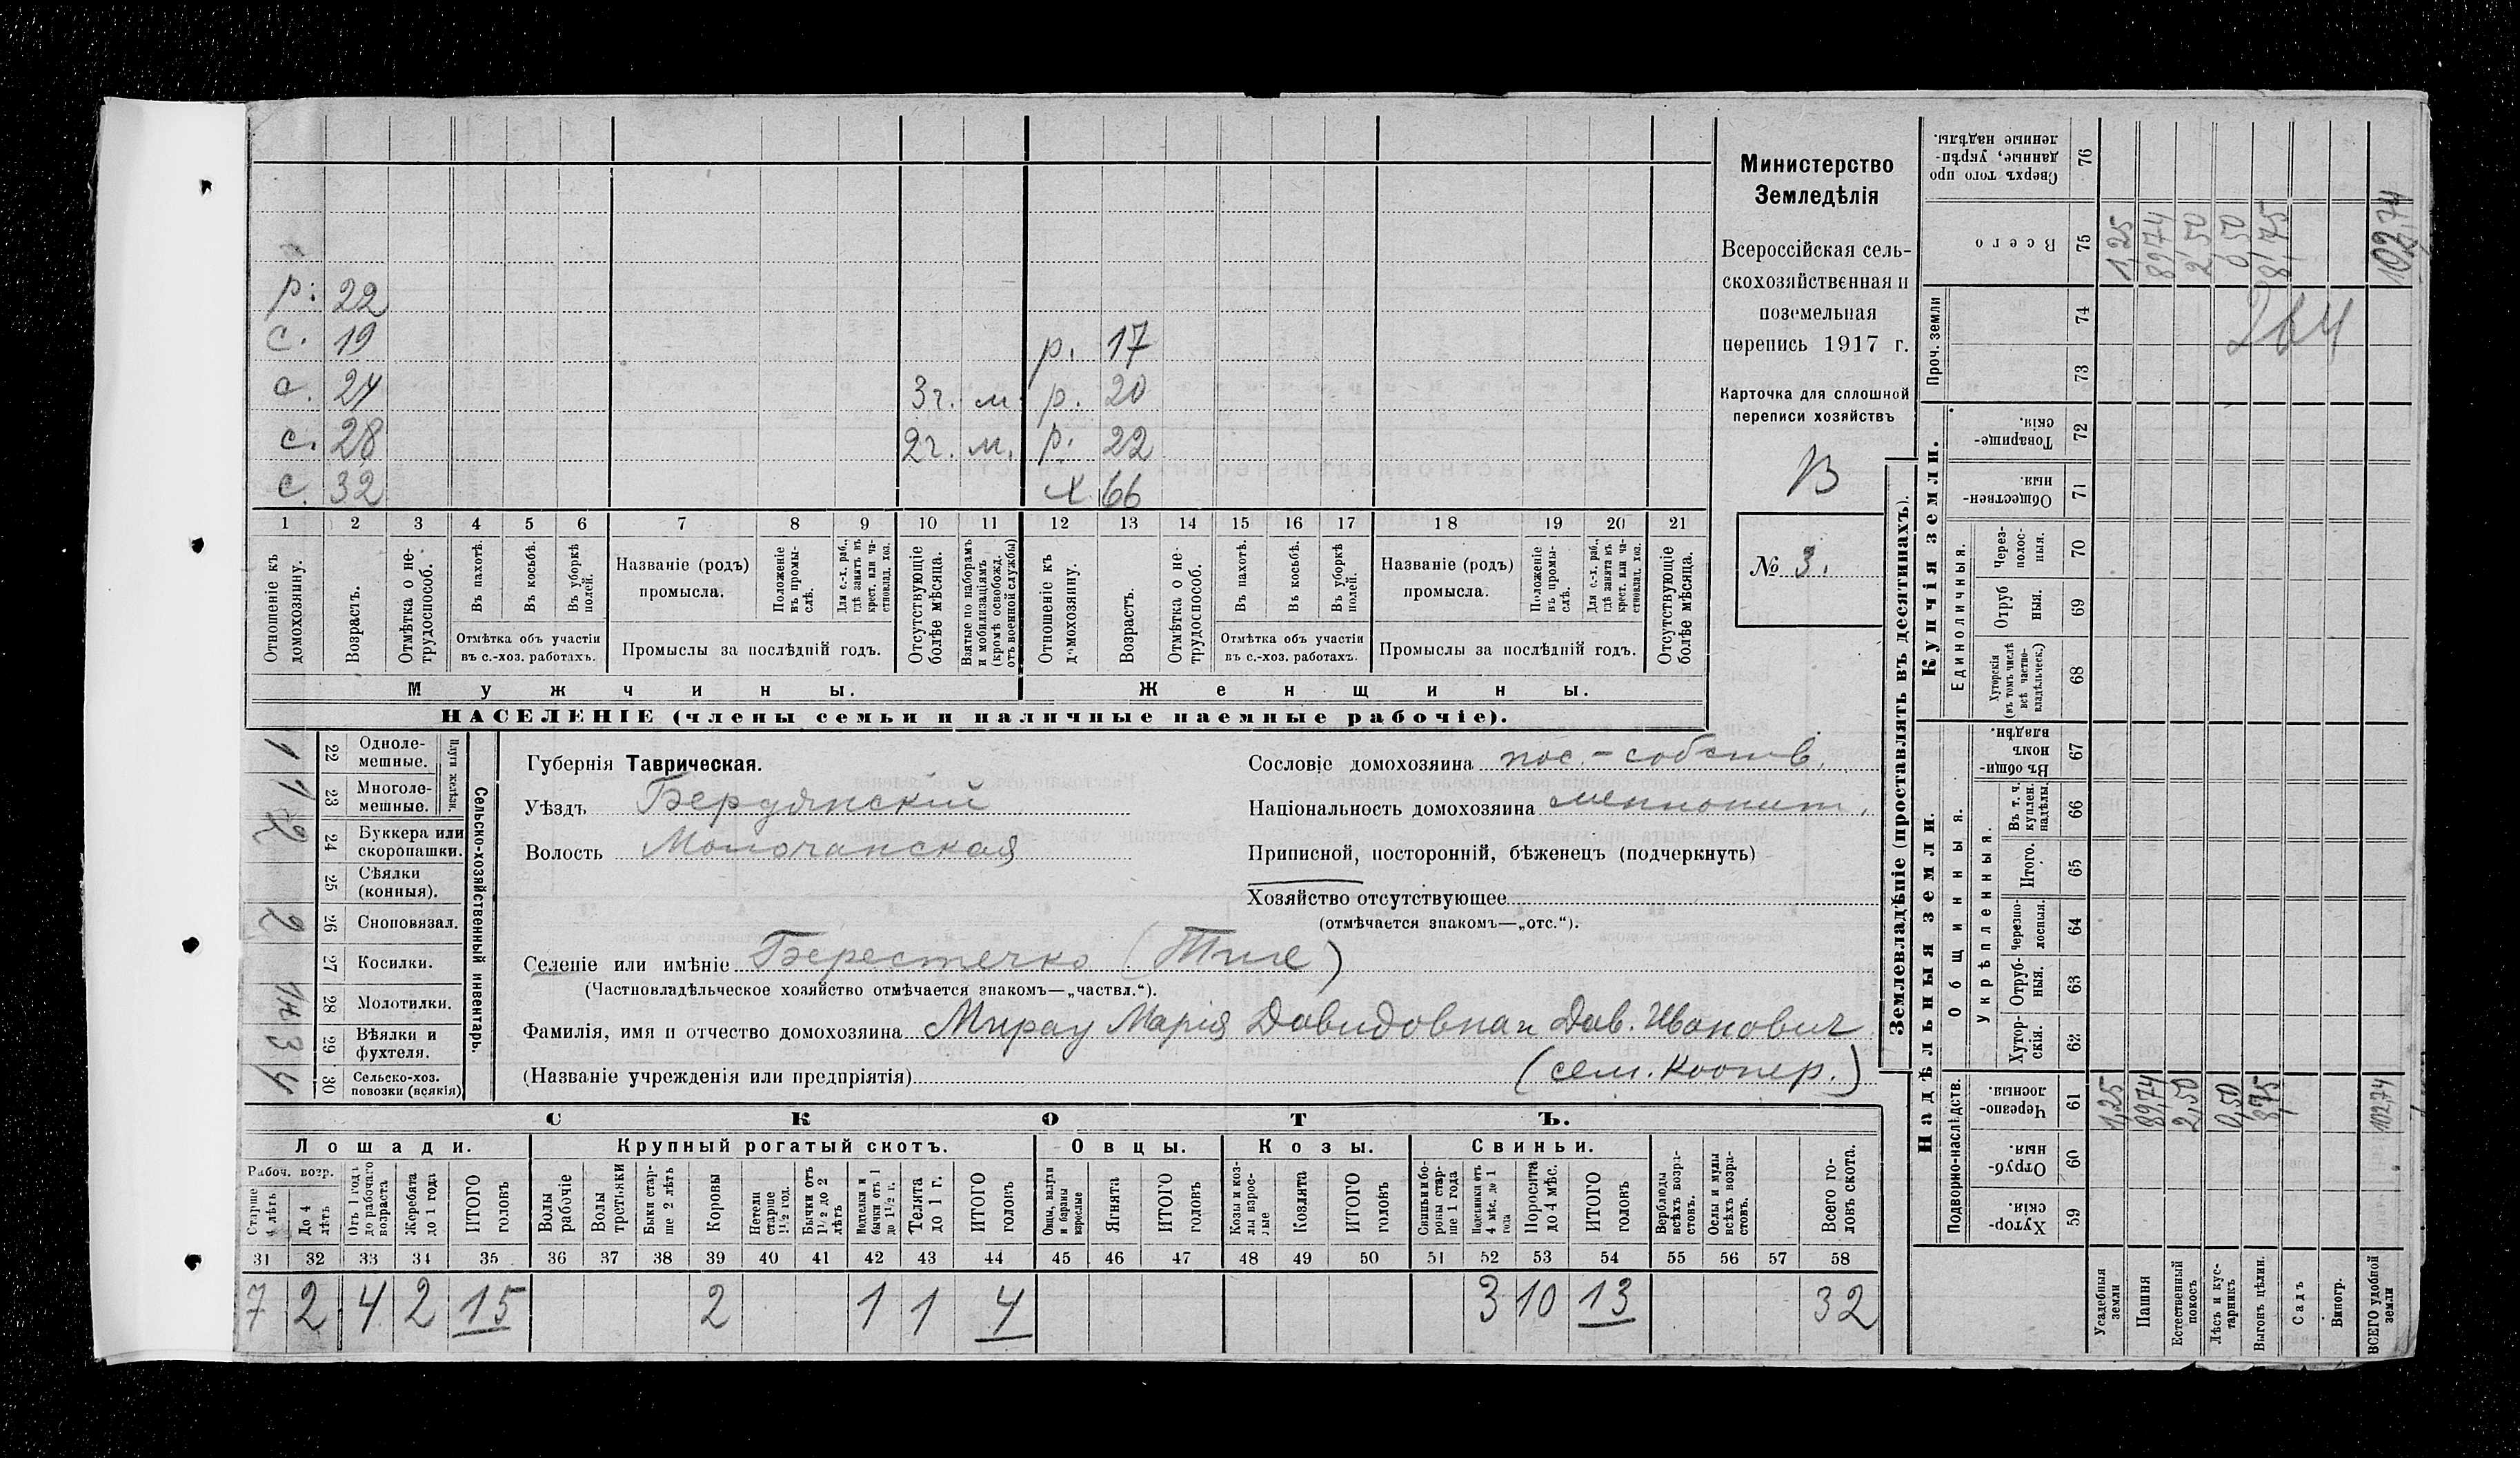 р. 22
с. 19 р. 17
с. 24 3г. м. р. 20
с. 28 2г. м. р. 22
с. 32 х. 66
1 2 3 4 5 6 7 8 9 10 11 12 13 14 15 16 17 18 19 20 21
Отношеніе къ домохозяину.
Возрастъ.
Отмѣтка о не-
трудоспособ.
Въ пахотѣ.
Въ косьбѣ.
Въ уборкѣ
полей.
Отмѣтка объ участіи
въ с.-хоз. работахъ.
Названіе (родъ)
промысла.
Положеніе
въ промы-
слѣ.
Для с.-х. раб.,
гдѣ занятъ въ
крест. или ча-
стновлад. хоз.
Промыслы за послѣдній годъ.
Отсутствующіе
болѣе мѣсяца.
Взятые по наборамъ
и мобилизаціямъ
(кромѣ освобожд.
отъ военной службы)
Отношеніе къ
домохозяину.
Возрастъ.
Отмѣтка о не-
трудоспособ.
Въ пахотѣ.
Въ косьбѣ.
Въ уборкѣ
полей.
Отмѣтка объ участіи
въ с.-хоз. работахъ.
Названіе (родъ)
промысла.
Положеніе
въ промы-
слѣ.
Для с.-х. раб.,
гдѣ занята въ
крест. или ча-
стновлад. хоз.
Промыслы за послѣдній годъ.
Отсутствующіе
болѣе мѣсяца.
Мужчины.
Женщины.
НАСЕЛЕНІЕ (члены семьи и наличные наемные рабочіе).
Министерство
Земледѣлія
Всероссійская сель-
скохозяйственная и
поземельная
перепись 1917 г.
Карточка для сплошной
переписи хозяйствъ
В
№ 3.
Сельско-хозяйственный инвентарь.
Плуги желѣзн.
1 22 Одноле-
мешные.
1 23 Многоле-
мешные.
2 24 Буккера или
скоропашки.
25 Сѣялки
(конныя).
2 26 Сноповязал.
27 Косилки.
28 Молотилки.
3 29 Вѣялки и
фухтеля.
4 30 Сельско-хоз.
повозки (всякія)
Губернія Таврическая.
Уѣздъ Бердянскій
Волость Молочанская
Сословіе домохозяина пос.-собств.
Національность домохозяина меннонит.
Приписной, посторонній, бѣженецъ (подчеркнуть)
Хозяйство отсутствующее
(отмѣчается знакомъ—„отс.“).
Селеніе или имѣніе Берестечко (Тиге)
(Частновладѣльческое хозяйство отмѣчается знакомъ—„частвл.“).
Фамилія, имя и отчество домохозяина Мирау Марія Давидовна и Дав. Иванович
(Названіе учрежденія или предпріятія) (сем. коопер.)
СКОТЪ.
Лошади.
Крупный рогатый скотъ.
Овцы.
Козы.
Свиньи.
Рабоч. возр.
Старше
4 лѣтъ
До 4
лѣтъ
Отъ 1 года
до рабочаго
возраста
Жеребята
до 1 года
ИТОГО
головъ
Волы
рабочіе
Волы
третьяки
Быки стар-
ше 2 лѣтъ
Коровы
Нетели
старше
1½ год.
Бычки отъ
1½ до 2
лѣтъ
Нетелки и
бычки отъ 1
до 1½ г.
Телята
до 1 г.
ИТОГО
головъ
Овцы, валухи
и бараны
взрослые
Ягнята
ИТОГО
головъ
Козы и коз-
лы взрос-
лые
Козлята
ИТОГО
головъ
Свиньи и бо-
ровы стар-
ше 1 года
Подсвинки отъ
4 мѣс. до 1
года
Поросята
до 4 мѣс.
ИТОГО
головъ
Верблюды
всѣхъ возра-
стовъ.
Ослы и мулы
всѣхъ возра-
стовъ.
Всего го-
ловъ скота.
31 32 33 34 35 36 37 38 39 40 41 42 43 44 45 46 47 48 49 50 51 52 53 54 55 56 57 58
7 2 4 2 15 2 1 1 4 3 10 13 32
Землевладѣніе (проставлять въ десятинахъ).
Надѣльныя земли.
Купчія земли.
Проч. земли
Подворно-наслѣдств.
Общинныя.
Укрѣпленныя.
Единоличныя.
Сверхъ того про
данные, укрѣп-
ленные надѣлы.
76
Всего
75
74
73
Товарище-
скія.
72
Обществен-
ныя.
71
Через-
полос-
ныя.
70
Отруб
ныя.
69
Хуторскія
(въ томъ числѣ
всѣ частно-
владѣльческ.)
68
Въ общин-
номъ
владѣн.
67
Въ т. ч.
куплен.
надѣлы.
66
Итого.
65
Черезпо-
лосныя.
64
Отруб-
ныя.
63
Хутор-
скія.
62
Черезпо-
лосныя.
61
Отруб-
ныя.
60
Хутор-
скія.
59
1,25 89,74 2,50 0,50 8,75 102,74
264
1,25 89,74 2,50 0,50 8,75 102,74
Усадебныя
земли
Пашня
Естественный
покосъ
Лѣсъ и кус-
тарникъ
Выгонъ цѣлин.
Садъ
Виногр.
ВСЕГО удобной
земли